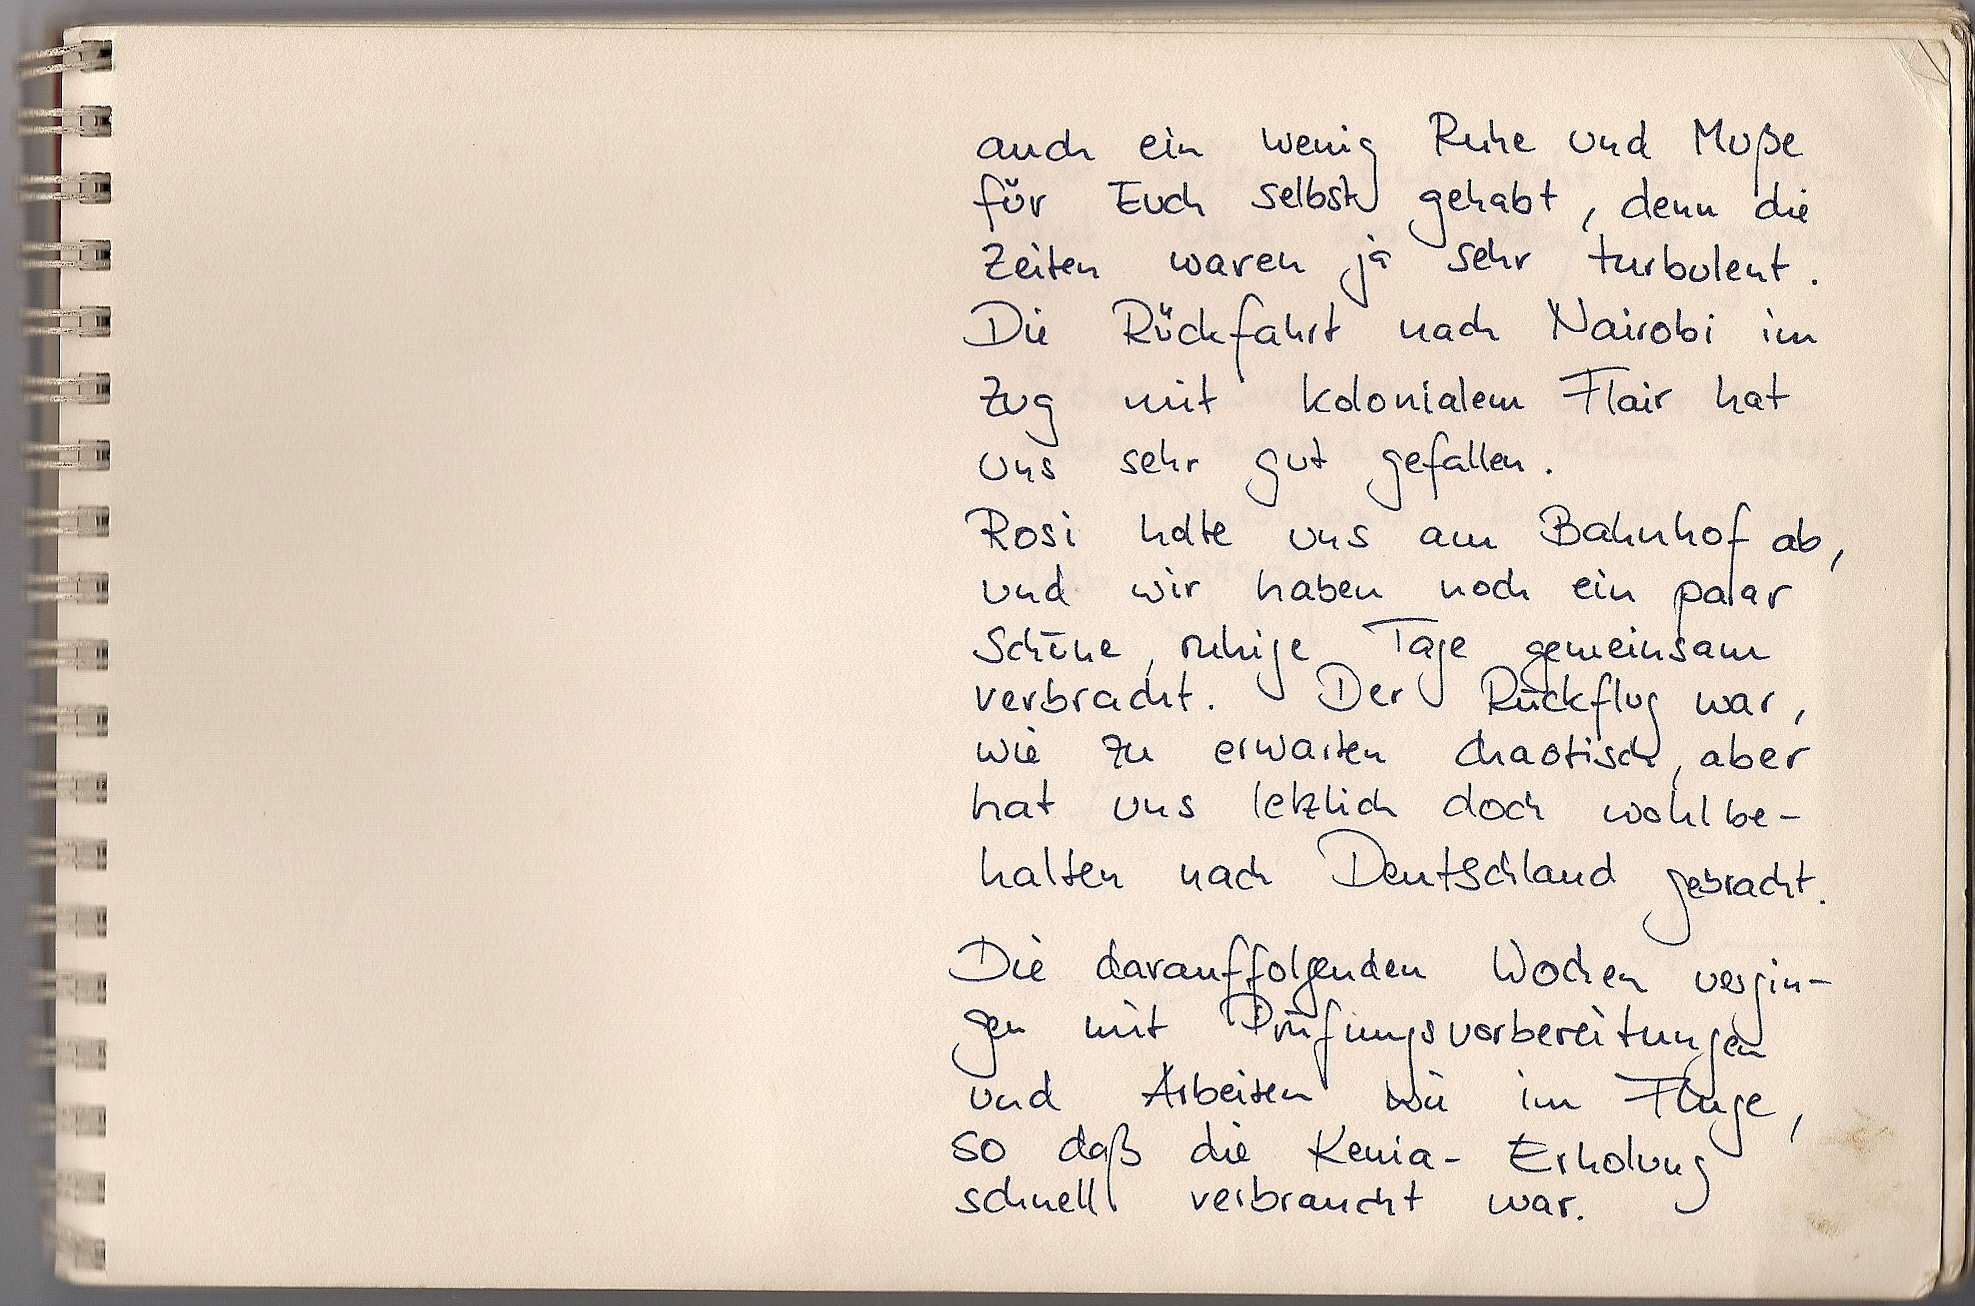 auch ein wenig Ruhe und Muße
für Euch selbst gehabt, denn die
Zeiten waren ja sehr turbulent.
Die Rückfahrt nach Nairobi im
Zug mit kolonialem Flair hat
uns sehr gut gefallen.
Rosi holte uns am Bahnhof ab,
und wir haben noch ein paar
schöne, ruhige Tage gemeinsam
verbracht. Der Rückflug war,
wie zu erwarten chaotisch, aber
hat uns letzlich doch wohlbe-
halten nach Deutschland gebracht.
Die darauffolgenden Wochen vergin-
gen mit Prüfungsvorbereitungen
und Arbeiten wie im Fluge,
so daß die Kenia-Erholung
schnell verbraucht war.